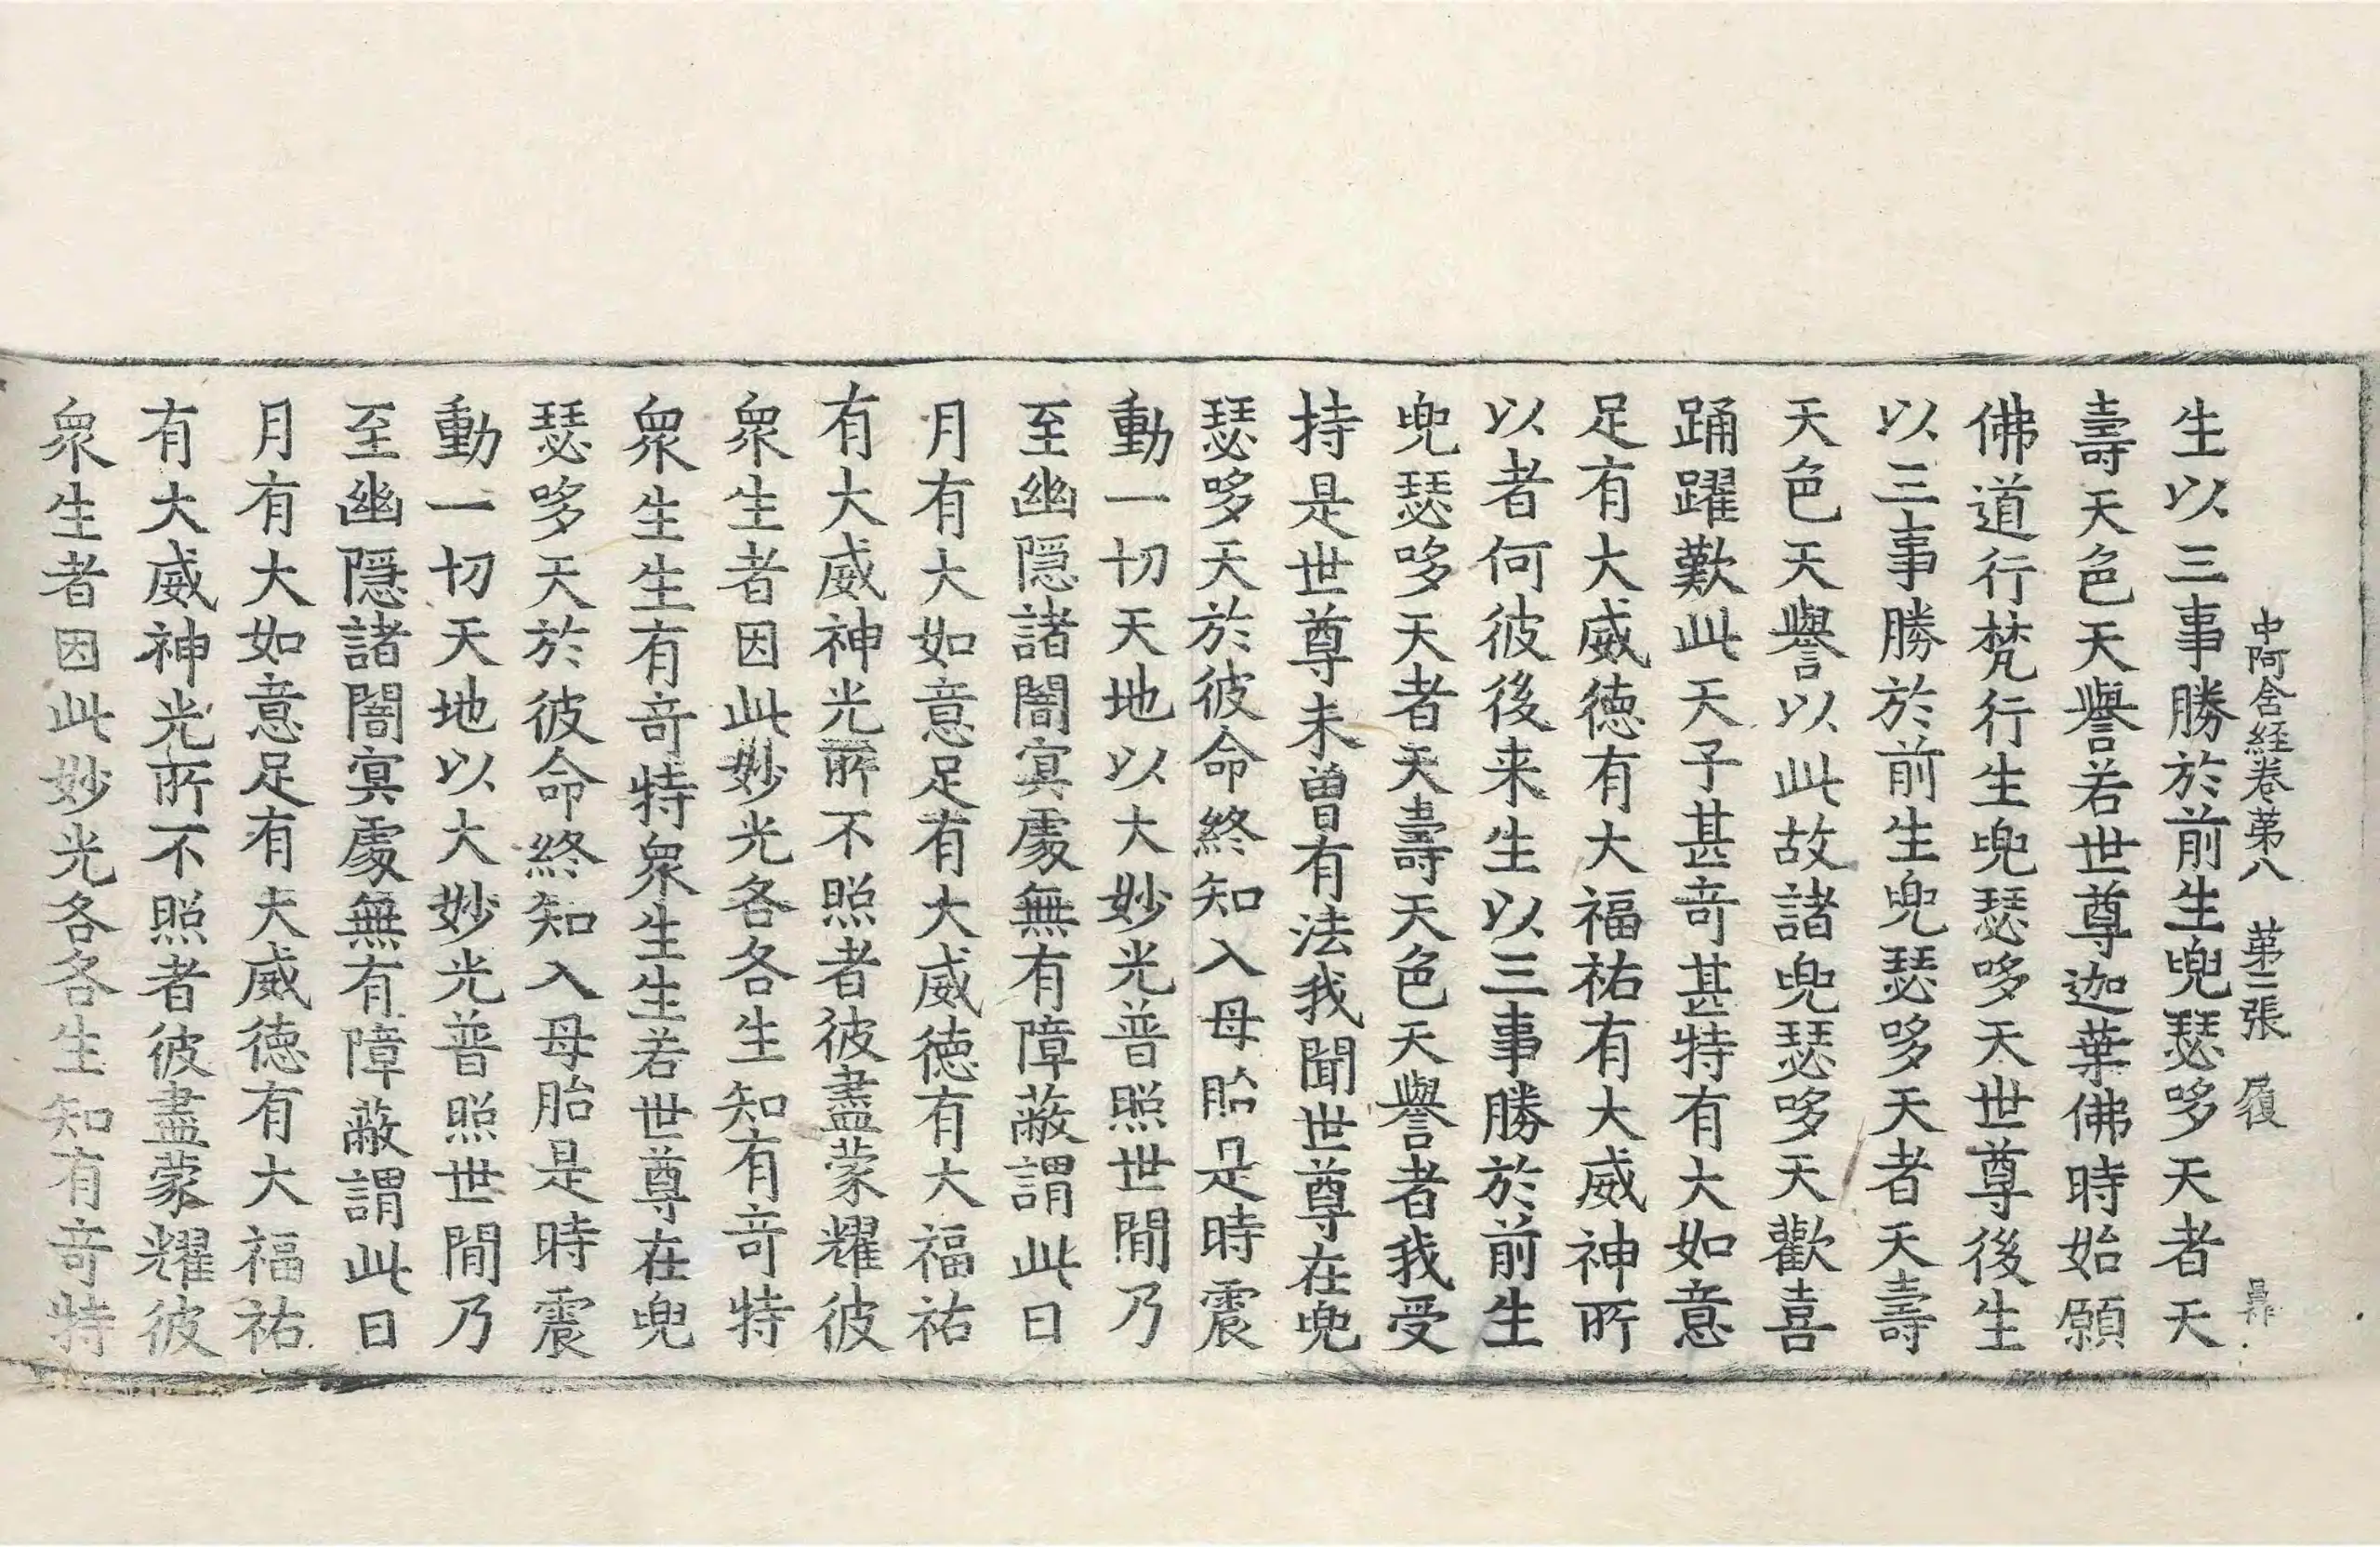 中阿含経卷第八　第三張　履
生以三事勝於前生兜瑟哆天者天
壽天色天譽若世尊迦葉佛時始願
佛道行梵行生兜瑟哆天世尊後生
以三事勝於前生兜瑟哆天者天壽
天色天譽以此故諸兜瑟哆天歡喜
踊躍歎此天子甚竒甚特有大如意
足有大威徳有大福祐有大威神所
以者何彼後来生以三事勝於前生
兜瑟哆天者天壽天色天譽者我受
持是世尊未曽有法我聞世尊在兜
瑟哆天於彼命終知入母胎是時震
動一切天地以大妙光普照世間乃
至幽隱諸闇㝠處無有障蔽謂此日
月有大如意足有大威徳有大福祐
有大威神光所不照者彼盡蒙耀彼
衆生者因此妙光各各生知有竒特
衆生生有竒特衆生生若世尊在兜
瑟哆天於彼命終知入母胎是時震
動一切天地以大妙光普照世間乃
至幽隱諸闇㝠處無有障蔽謂此日
月有大如意足有大威徳有大福祐
有大威神光所不照者彼盡蒙耀彼
衆生者因此妙光各各生知有竒特